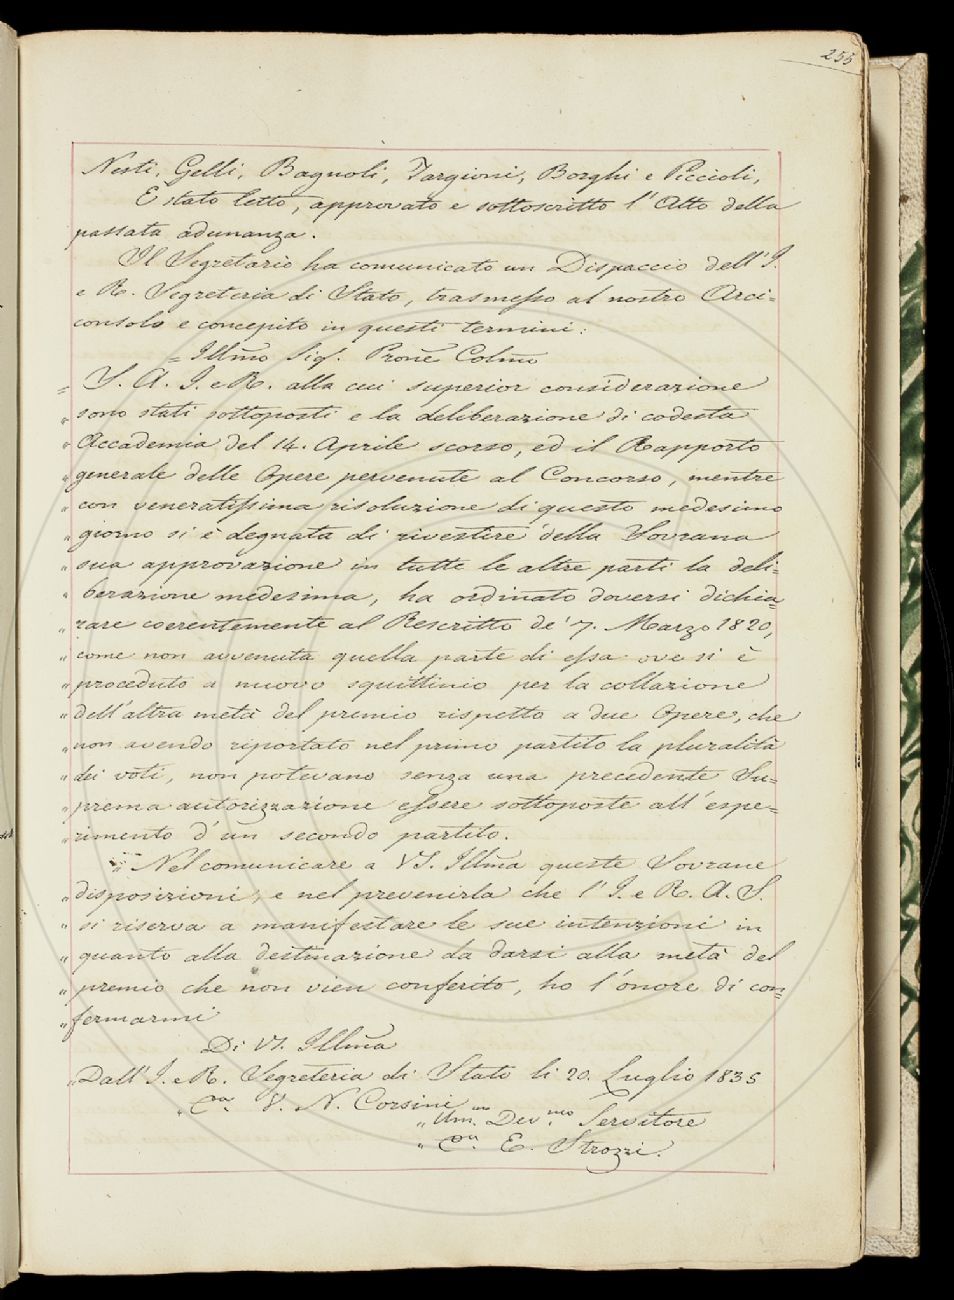 255
Nesti, Gelli, Bagnoli, Targioni, Borghi e Piccioli,
E stato letto, approvato e sottoscritto l'Atto della
passata adunanza.
Il Segretario ha comunicato un Dispaccio dell'I.
e R. Segreteria di Stato, trasmesso al nostro Arci=
consolo e concepito in questi termini:
= Illmo Sig. Prone Colmo
= S. A. I. e R. alla cui superior considerazione
" sono stati sottoposti e la deliberazione di codesta
" Accademia del 14. Aprile scorso, ed il Rapporto
" generale delle Opere pervenute al Concorso, mentre
" con veneratissima risoluzione di questo medesimo
" giorno si è degnata di rivestire della Sovrana
" sua approvazione in tutte le altre parti la deli=
" berazione medesima, ha ordinato doversi dichia=
" rare coerentemente al Rescritto de' 7. Marzo 1820,
" come non avvenuta quella parte di essa ove si è
" proceduto a nuovo squittinio per la collazione
" dell'altra metà del premio rispetto a due Opere, che
" non avendo riportato nel primo partito la pluralità
" dei voti, non potevano senza una precedente Su=
" prema autorizzazione essere sottoposte all'espe=
" rimento d'un secondo partito.
" Nel comunicare a VS. Illma queste Sovrane
" disposizioni, e nel prevenirla che l'I. e R. A. S.
" si riserva a manifestare le sue intenzioni in
" quanto alla destinazione da darsi alla metà del
" premio che non vien conferito, ho l'onore di con=
" fermarmi
Di VS. Illma
" Dall'I. e R. Segreteria di Stato li 20. Luglio 1835
" V. N. Corsini
" Um. Dev.mo Servitore
" E. Strozzi.